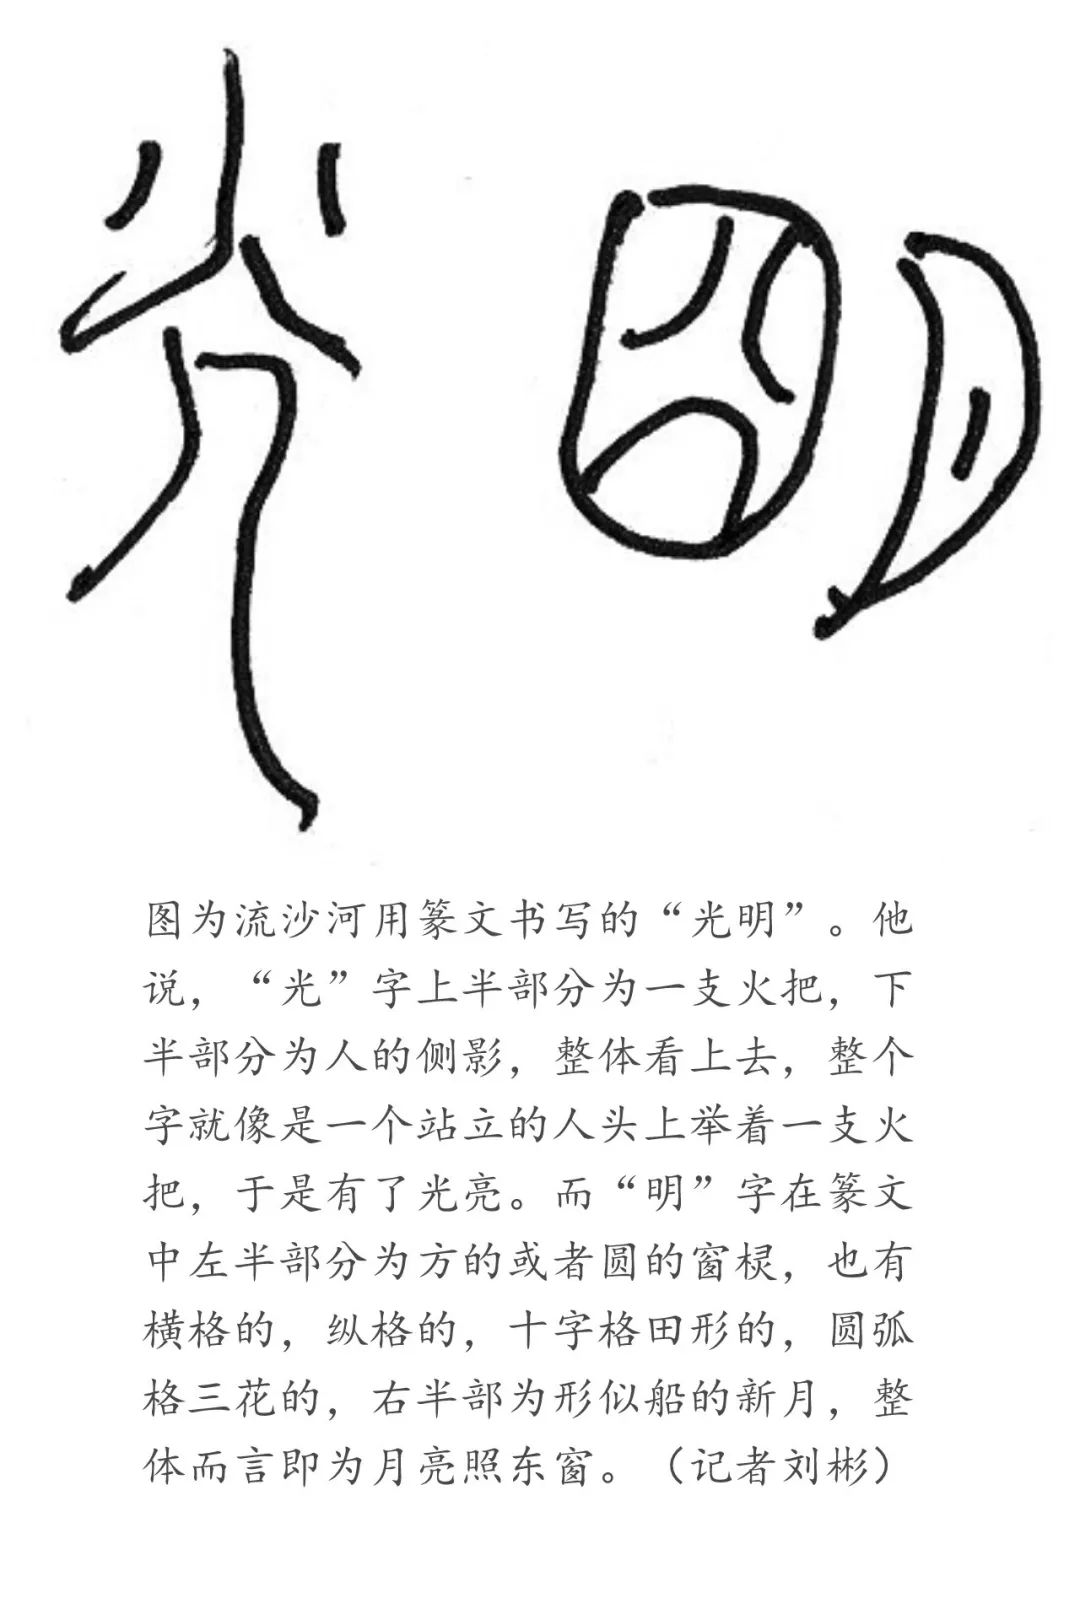 光明
图为流沙河用篆文书写的“光明”。他
说，“光”字上半部分为一支火把，下
半部分为人的侧影，整体看上去，整个
字就像是一个站立的人头上举着一支火
把，于是有了光亮。而“明”字在篆文
中左半部分为方的或者圆的窗棂，也有
横格的，纵格的，十字格田形的，圆弧
格三花的，右半部为形似船的新月，整
体而言即为月亮照东窗。（记者刘彬）